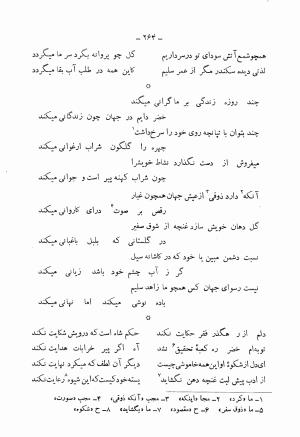 - ۲۶۴ -
همچو شمع آتش سودای تو در سر داریم
گل چو پروانه بگرد سر ما میگردد
لذتی دیده سکندر مگر از عمر سلیم
کاین همه در طلب آب بقا میگردد
چند روزه زندگی بر ما گرانی میکند
خضر دایم در جهان چون زندگانی میکند
چند بتوان با تپانچه روی خود را سرخ داشت
چهره را گلگون شراب ارغوانی میکند
میفروش از دست نگذارد نشاط خویش را
چون شراب کهنه پیر است و جوانی میکند
آنکه دارد ذوقی از عیش جهان همچون غبار
رقص بر صوت درای کاروانی میکند
گل دهان خویش سازد غنچه از شوق صفیر
در گلستانی که بلبل باغبانی میکند
نسبت دشمن مبین با خود که در کاشانه سیل
گر ز آب چشم خود باشد زیانی میکند
نیست رسوای جهان کس همچو ما زاهد سلیم
باده نوشی میکند اما نهانی میکند
دلم از رهگذر فقر حکایت نکند
حکم شاه است که درویش شکایت نکند
نوبدام خضر ره کعبهٔ تحقیق نشد
آه اگر پیر خرابات هدایت نکند
ای دل از شکوهٔ او اینهمه خاموشی چیست
دیگر آن لطف که میکرد نهایت نکند
از ادب پیش لبت غنچه دهن نگشاید
پسته خود کیست که این شیوه رعایت نکند
۱- ما «کرد» ۲- مجا «اینکه» ۳- مجب «آنکه ذوقی» ۴- مجب «صورت»
۵- ما «ذوق سفر» ۶- ح «مقصود» ۷- ما «بگشاید» ۸- ح «شکوه»